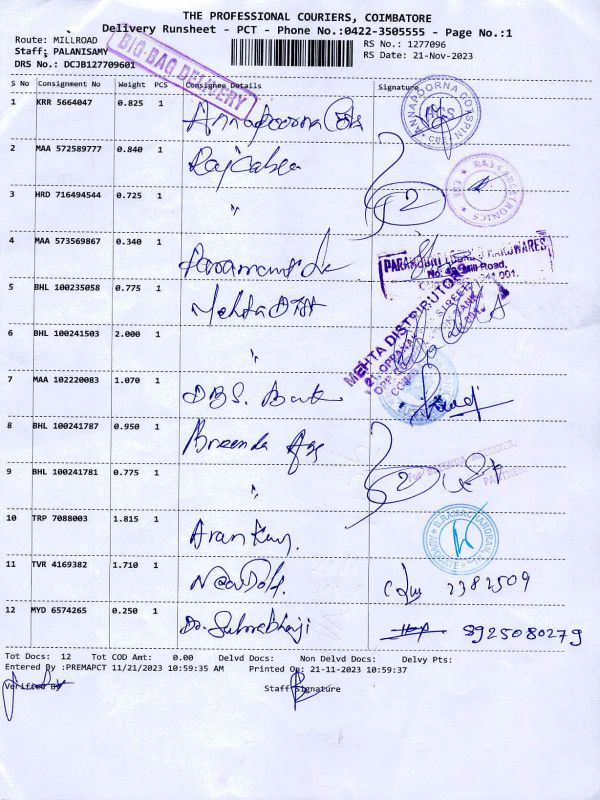 THE PROFESSIONAL COURIERS, COIMBATORE
Delivery Runsheet - PCT - Phone No.:0422-3505555 - Page No.:1
Route: MILLROAD RS No.: 1277096
Staff: PALANISAMY RS Date: 21-Nov-2023
DRS No.: DCJB127709601
BIG BAG DELIVERY
S No Consignment No Weight PCS Consignee Details Signature
1 KRR 5664047 0.825 1 Annapoorna
ANNAPOORNA ROTASPIN
CBE
2 MAA 572589777 0.840 1
3 HRD 716494544 0.725 1 "
4 MAA 573569867 0.340 1
PARAMOUNT HARDWARES
Mill Road,
5 BHL 100235058 0.775 1 Mehta
MEHTA DISTRIBUTORS
STREET,
6 BHL 100241503 2.000 1 "
7 MAA 102220083 1.070 1 DBS. Bank
8 BHL 100241787 0.950 1
9 BHL 100241781 0.775 1 "
PARTNER
10 TRP 7088003 1.815 1
B.RAMACHANDRAN
ADVOCATE
11 TVR 4169382 1.710 1 2382509
12 MYD 6574265 0.250 1 Dr. 8925080279
Tot Docs: 12 Tot COD Amt: 0.00 Delvd Docs: Non Delvd Docs: Delvy Pts:
Entered By :PREMAPCT 11/21/2023 10:59:35 AM Printed On: 21-11-2023 10:59:37
Verified By Staff Signature